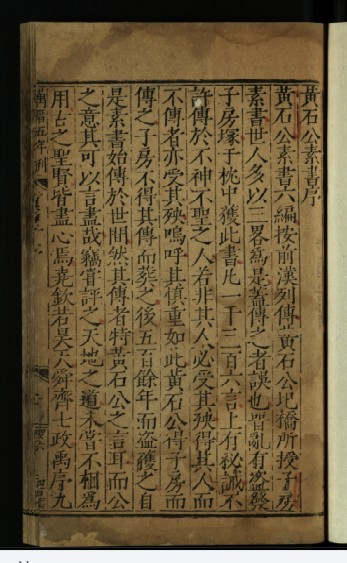 黃石公素書序
黃石公素書六編按前漢列傳黃石公圯橋所授子房
素書世人多以三畧為是蓋傳之者誤也晋亂有盜發
子房塚于枕中獲此書凡一千三百六言上有秘誡不
許傳於不神不聖之人若非其人必受其殃得其人而
不傳者亦受其殃嗚呼其慎重如此黃石公得子房而
傳之子房不得其傳而葬之後五百餘年而盜獲之自
是素書始傳於世間然其傳者特黃石公之言耳而公
之意其可以言盡哉竊嘗評之天地之道未嘗不相為
用古之聖賢皆盡心焉堯欽若昊天舜齊七政禹序九
五年刊